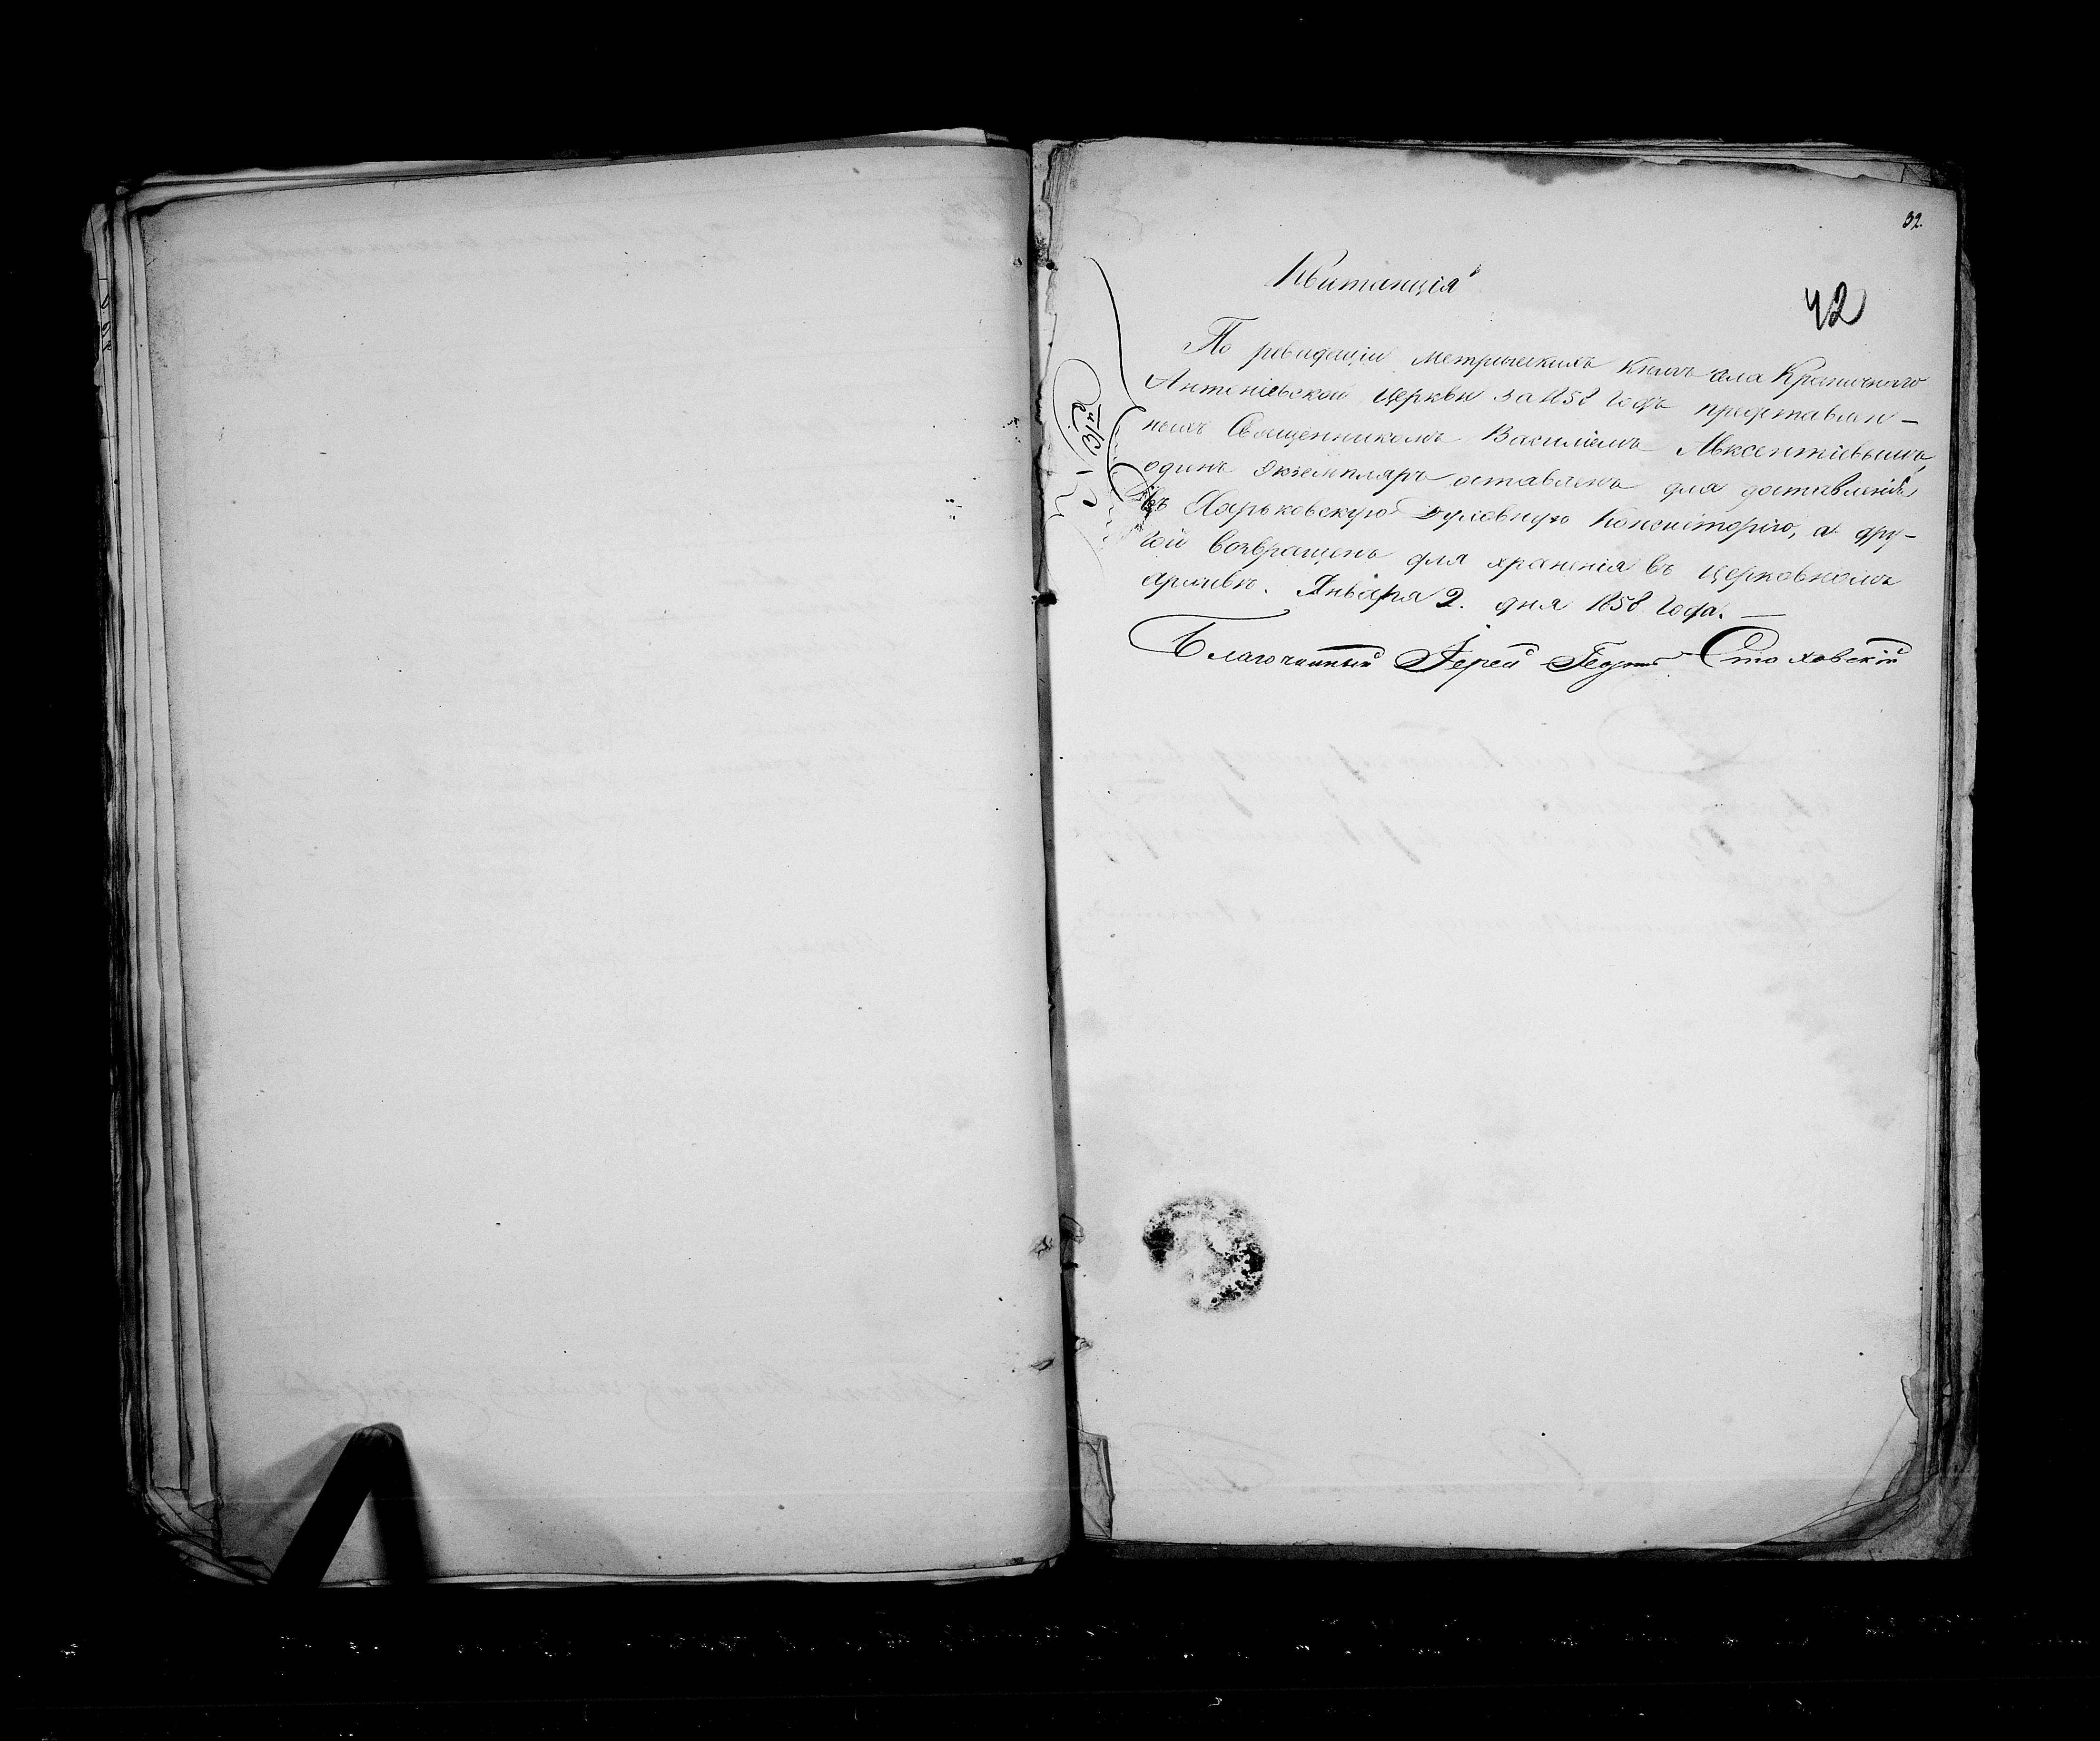 32
42
Квитанція
По ревидаціи Метрическихъ Книгъ села Краничнаго
Антоніевской Церкви за 1858 годъ представлен-
ныхъ Священникомъ Василіемъ Авксентіевымъ,
одинъ экземпляръ оставленъ для доставленія
въ Харьковскую Духовную Консисторію, а дру-
гой возвращенъ для храненія въ Церковномъ
архивѣ. Января 2. дня 1858 года.
Благочинный Іерей Стоховскій